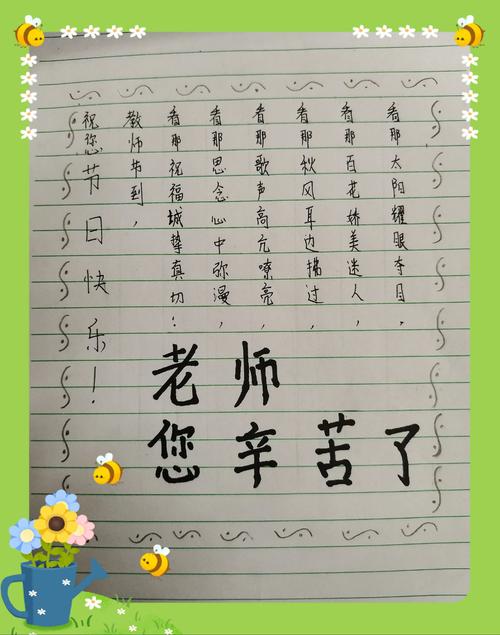 看那太阳耀眼夺目,
看那百花娇美迷人,
看那秋风耳边过,
看那歌声高亢嘹亮,
看那思念心中弥漫,
看那祝福城挚真切!
教师节到,
祝您节日快乐!
老师
您辛苦了